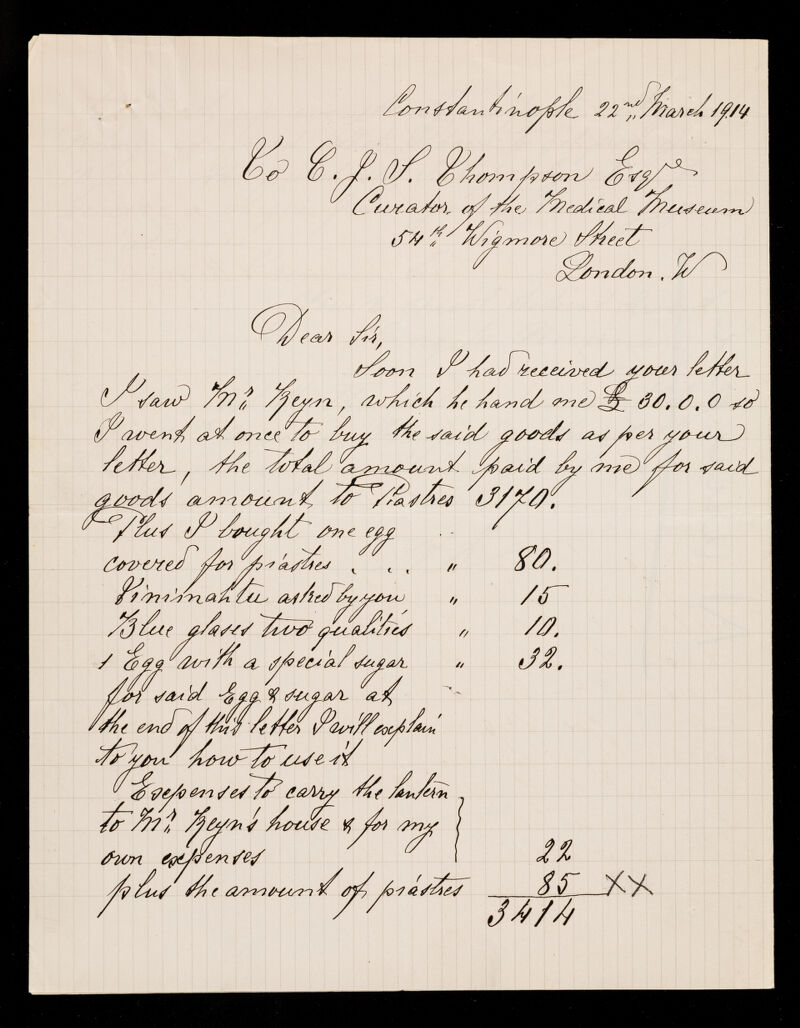 Constantinople 22nd March 1914
To C. J. S. Thompson Esqre
Curator of the Medical Museum
54th Wigmore Street
London. W
Dear Sir,
Soon I had received your letter
I saw Mr Zeyn, which he hand me £ 30.0.0 so
I went at once to buy the said goods as per your
letter, the total amount paid by me for said
goods amount to Piastres 3170.
Plus I bought one egg
covered for piastres . . . " 80.
asked by you " 15
Blue glases two qualitiés " 10.
1 Egg with a special sugar " 32.
for said Egg & sugar at
the end of this letter I will explain
to you how to use it
Expenses to carry the lantern
to Mr Zeyn's house & for my
own expenses 22
plus the amount of piastres 85 XX
3414